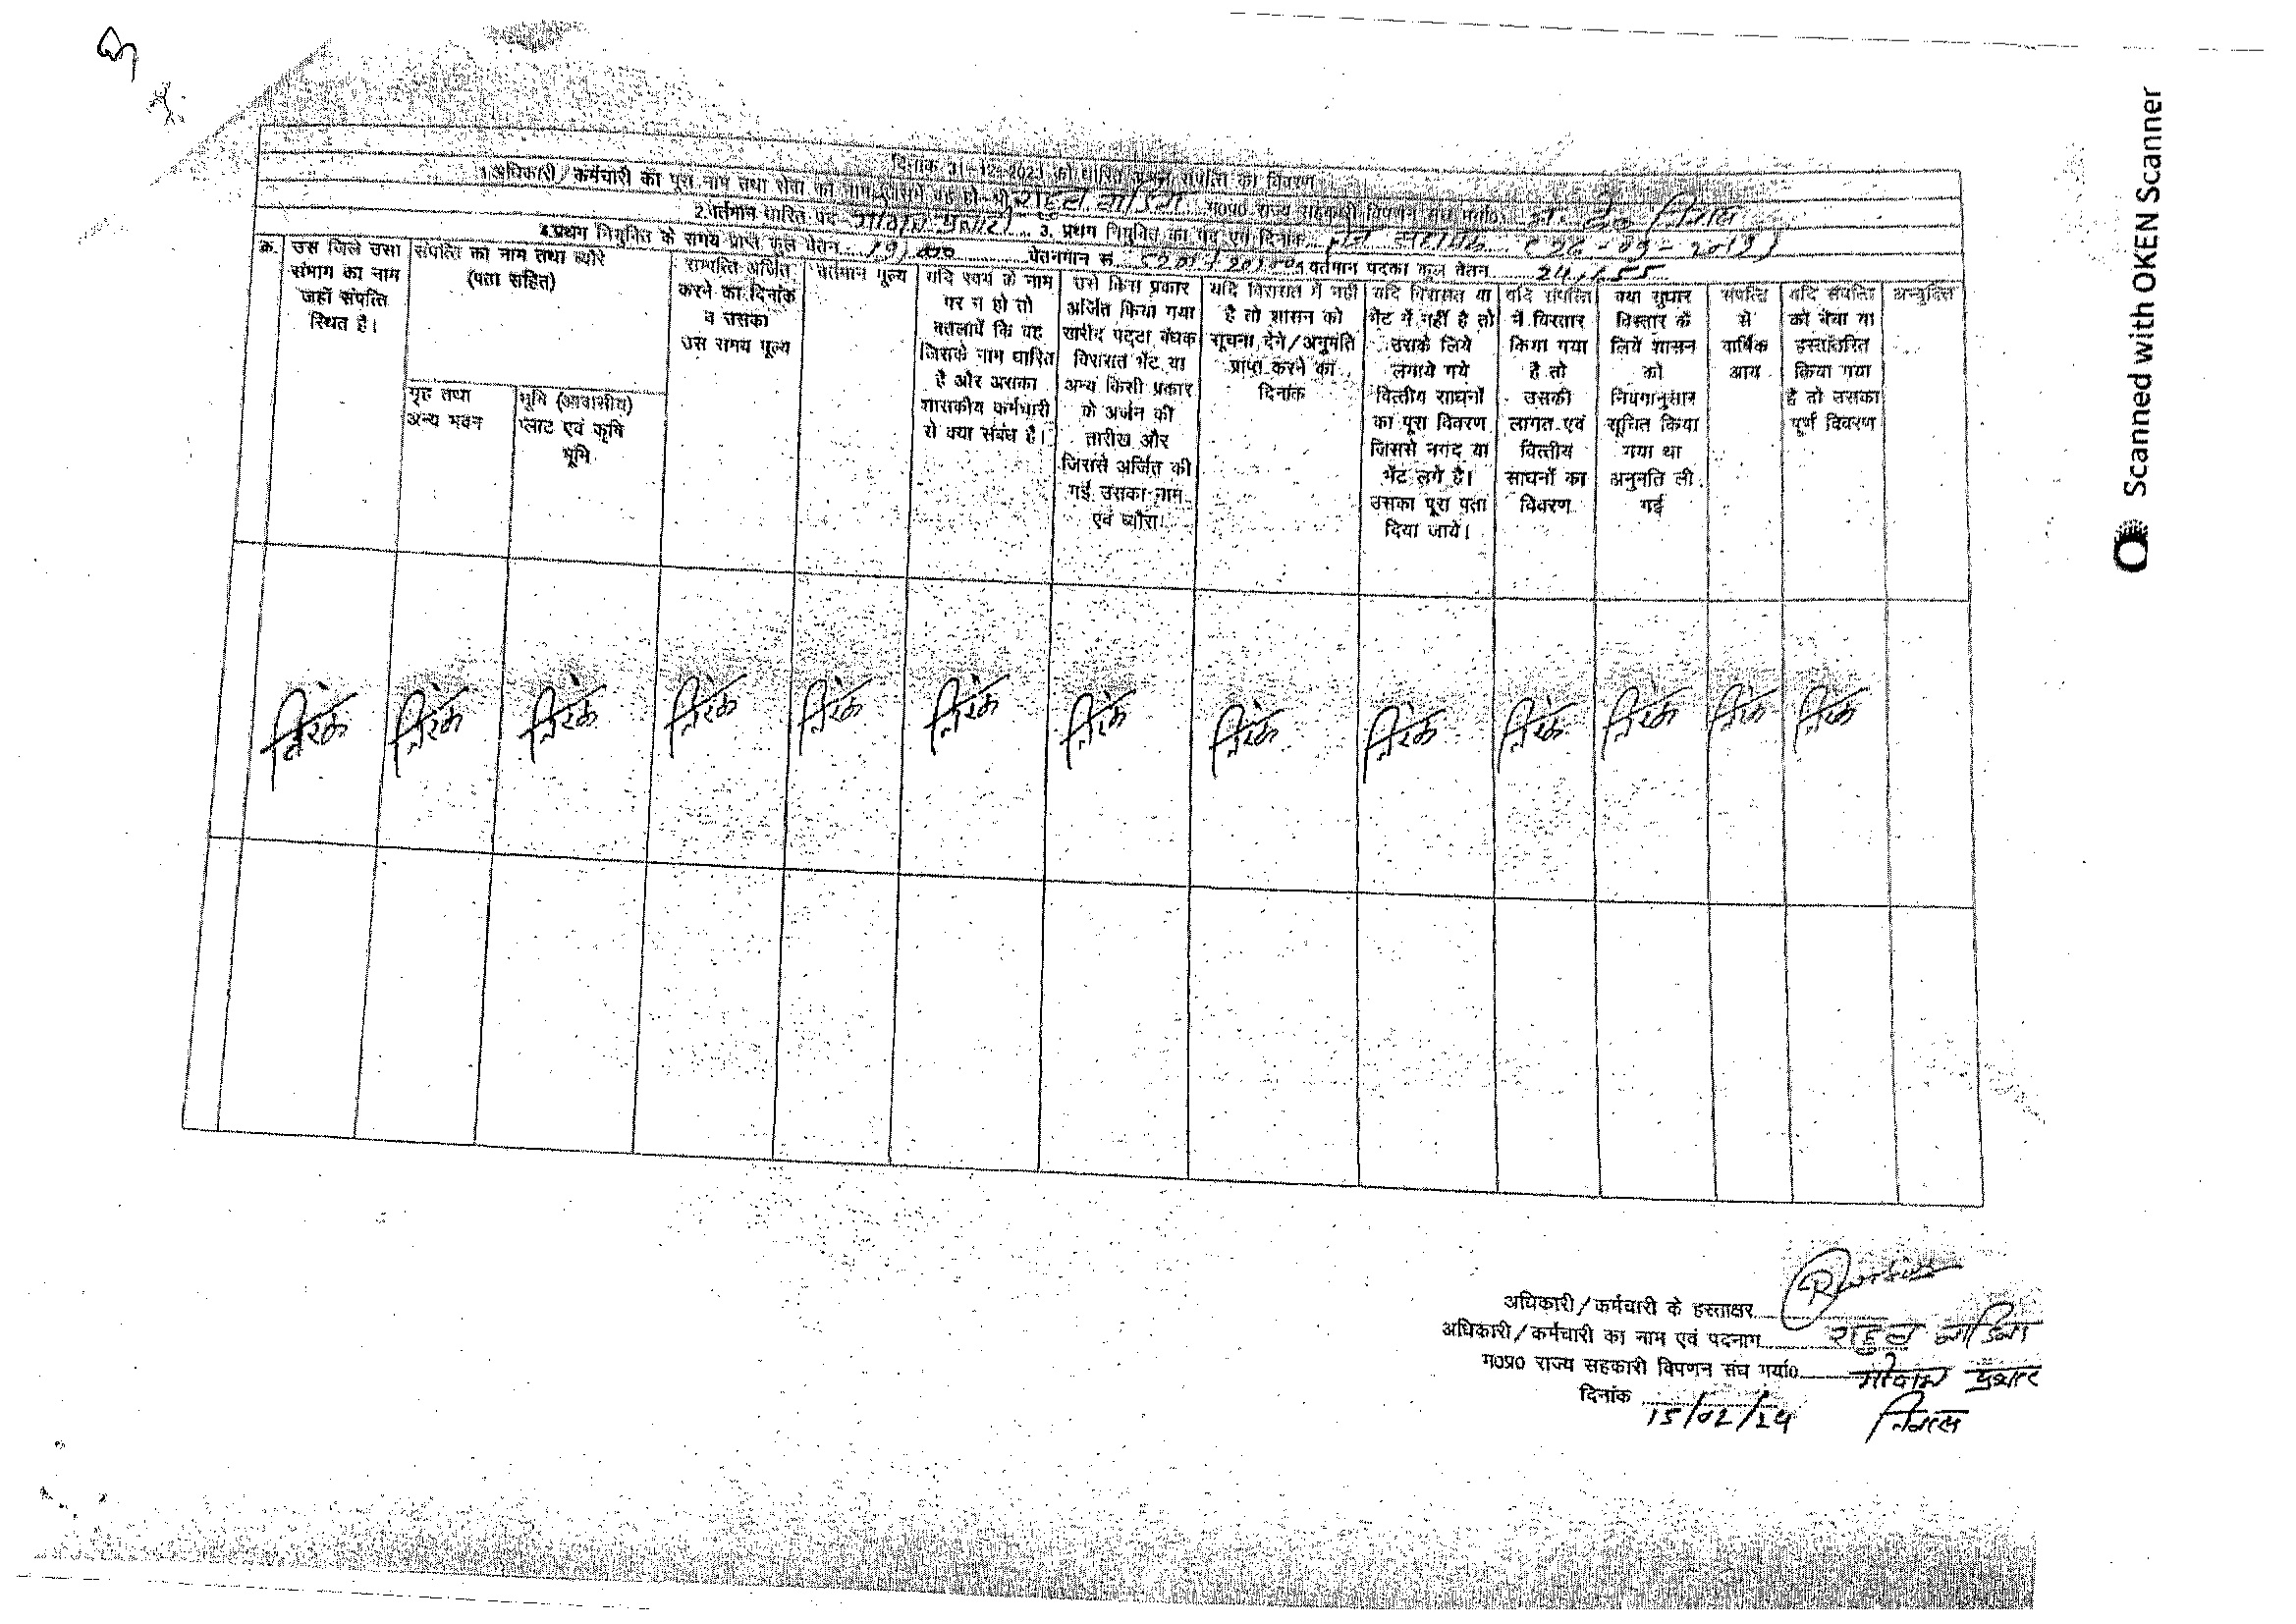 दिनांक 31-12-2023 को धारित अचल संपत्ति का विवरण
1.अधिकारी/कर्मचारी का पूरा नाम तथा सेवा का नाम जिसमें वह हो श्री राहुल वाडिवा म०प्र० राज्य सहकारी विपणन संघ मर्या०
2.वर्तमान धारित पद गोदाम प्रभारी 3. प्रथम नियुक्ति का पद एवं दिनांक
4.प्रथम नियुक्ति के समय प्राप्त कुल वेतन वेतनमान रू. 5200-20200 वर्तमान पदका कुल वेतन 24,155
क्र. उस जिले उसा संभाग का नाम जहाँ संपत्ति स्थित है।
संपत्ति का नाम तथा ब्यौरे (पता सहित)
गृह तथा अन्य भवन
भूमि (आवासीय) प्लाट एवं कृषि भूमि
सम्पत्ति अर्जित करने का दिनांक व उसका उस समय मूल्य
वर्तमान मूल्य
यदि स्वयं के नाम पर न हो तो बतलायें कि वह जिसके नाम धारित है और उसका शासकीय कर्मचारी से क्या संबंध है।
उसे किस प्रकार अर्जित किया गया खरीद पट्टा बंधक विरासत भेंट या अन्य किसी प्रकार के अर्जन की तारीख और जिससे अर्जित की गई उसका नाम एवं ब्यौरा।
यदि विरासत में नहीं है तो शासन को सूचना देने/अनुमति प्राप्त करने का दिनांक
यदि विरासत या भेंट में नहीं है तो उसके लिये लगाये गये वित्तीय साधनों का पूरा विवरण जिससे नगद या भेंट लगे है। उसका पूरा पता दिया जाये।
यदि संपत्ति में विस्तार किया गया है तो उसकी लागत एवं वित्तीय साधनों का विवरण
क्या सुधार विस्तार के लिये शासन को नियमानुसार सूचित किया गया था अनुमति ली गई
संपत्ति से वार्षिक आय
यदि संपत्ति को बेचा या हस्तांतरित किया गया है तो उसका पूर्ण विवरण
अभ्युक्ति
निरंक निरंक निरंक निरंक निरंक निरंक निरंक निरंक निरंक निरंक निरंक निरंक निरंक
अधिकारी/कर्मचारी के हस्ताक्षर
अधिकारी/कर्मचारी का नाम एवं पदनाम राहुल वाडिवा
म०प्र० राज्य सहकारी विपणन संघ मर्या० गोदाम प्रभारी
दिनांक 15/02/24 निवास
Scanned with OKEN Scanner